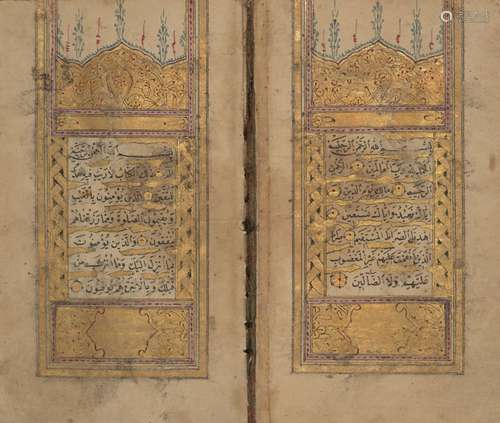 بِسْمِ اللهِ الرَّحْمٰنِ الرَّحِيمِ
اَلْحَمْدُ لِلّٰهِ رَبِّ الْعَالَمِينَ اَلرَّحْمٰنِ
الرَّحِيمِ مَالِكِ يَوْمِ الدِّينِ
اِيَّاكَ نَعْبُدُ وَاِيَّاكَ نَسْتَعِينُ
اِهْدِنَا الصِّرَاطَ الْمُسْتَقِيمَ صِرَاطَ
الَّذِينَ اَنْعَمْتَ عَلَيْهِمْ غَيْرِ الْمَغْضُوبِ
عَلَيْهِمْ وَلَا الضَّالِّينَ
بِسْمِ اللهِ الرَّحْمٰنِ الرَّحِيمِ
الم ذٰلِكَ الْكِتَابُ لَا رَيْبَ فِيهِ هُدًى
لِلْمُتَّقِينَ اَلَّذِينَ يُؤْمِنُونَ بِالْغَيْبِ
وَيُقِيمُونَ الصَّلٰوةَ وَمِمَّا رَزَقْنَاهُمْ
يُنْفِقُونَ وَالَّذِينَ يُؤْمِنُونَ
بِمَا اُنْزِلَ اِلَيْكَ وَمَا اُنْزِلَ مِنْ
قَبْلِكَ وَبِالْاٰخِرَةِ هُمْ يُوقِنُونَ